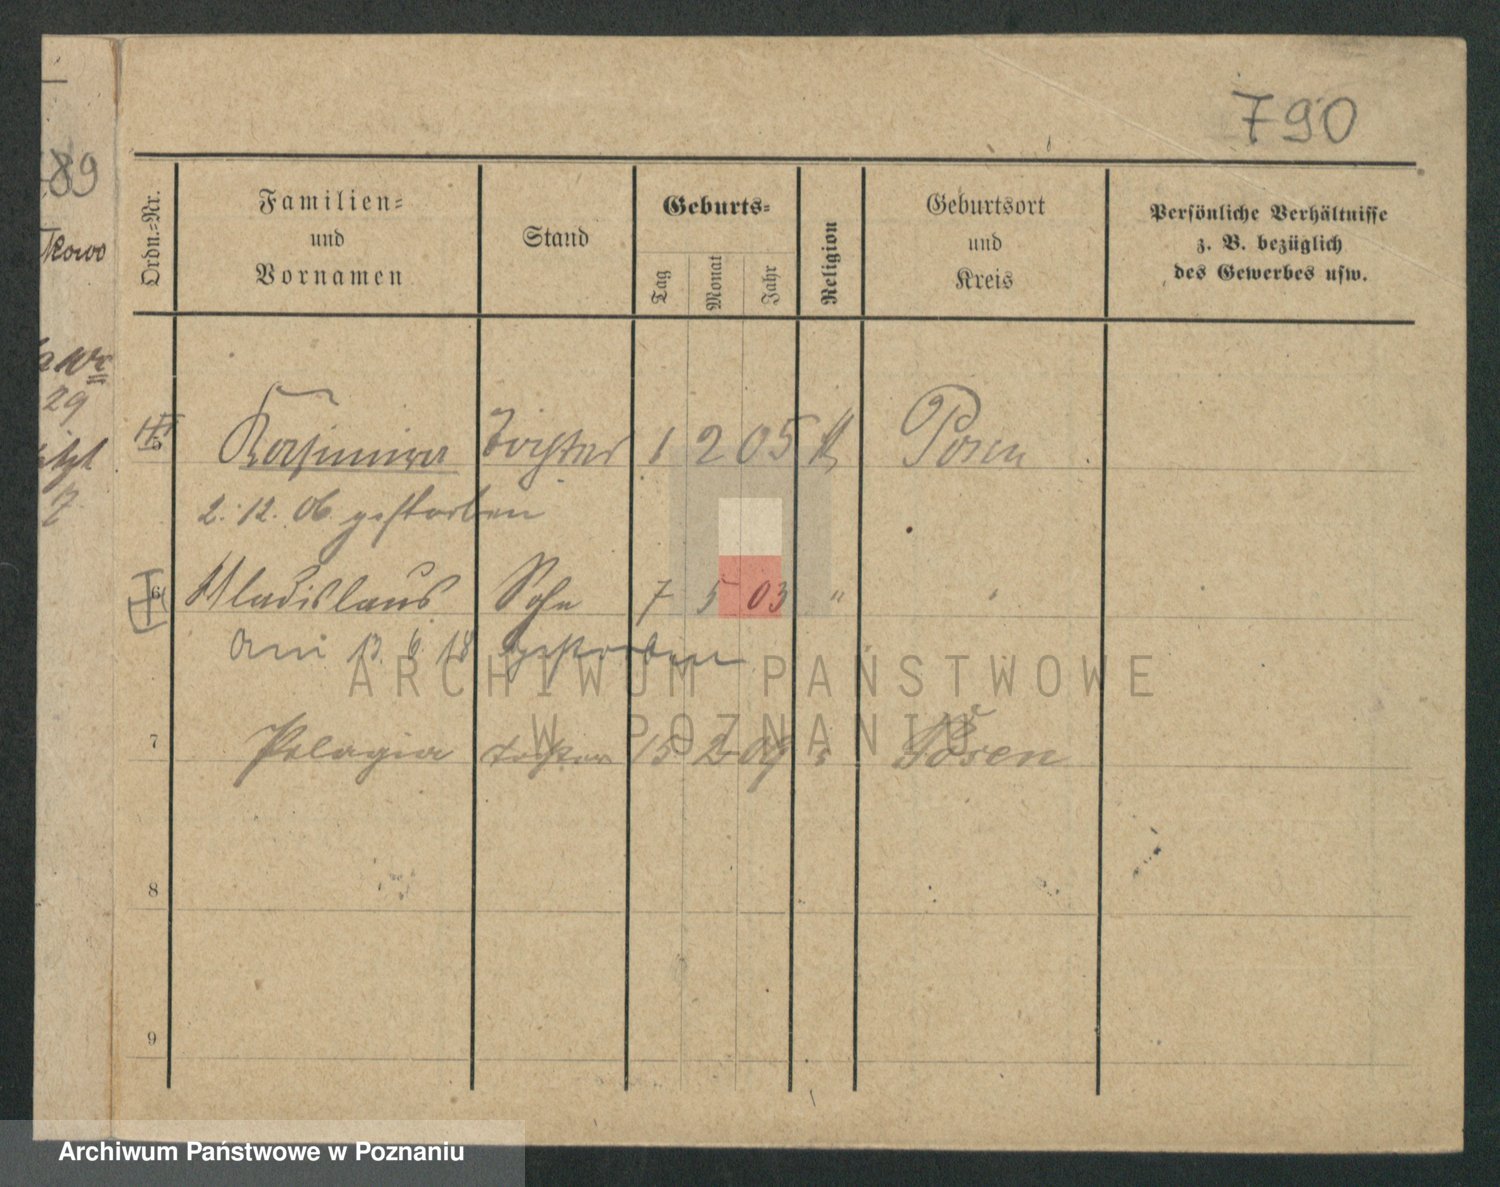 790
89
kowo
29
Ordn.-Nr.
Familien-
und
Vornamen
Stand
Geburts-
Tag
Monat
Jahr
Religion
Geburtsort
und
Kreis
Persönliche Verhältnisse
z. B. bezüglich
des Gewerbes usw.
5 Kasimira Tochter 1 2 05 K Posen
2. 12. 06 gestorben
6 Wladislaus Sohn 7 5 03 " "
Am 13. 6. 18 gestorben
ARCHIWUM PAŃSTWOWE
W POZNANIU
7 Pelagia Tochter 15 2 09 Posen
8
9
Archiwum Państwowe w Poznaniu